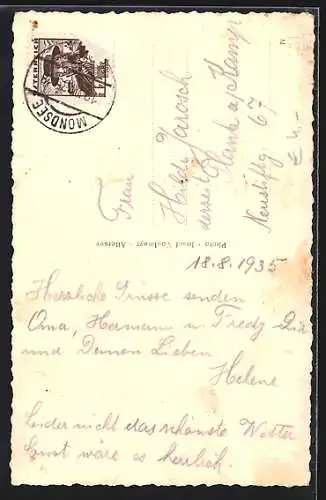 ÖSTERREICH
MONDSEE
Frau
Hilde Jarosch
derzeit Plank a/Kamp
Neustiftg 67
€ 4,-
Photo - Josef - Attersee
18.8.1935
Herzliche Grüsse senden
Oma, Hermann u. Fredy Dir
und Deinen Lieben
Helene
Leider nicht das schönste Wetter
sonst wäre es herrlich.